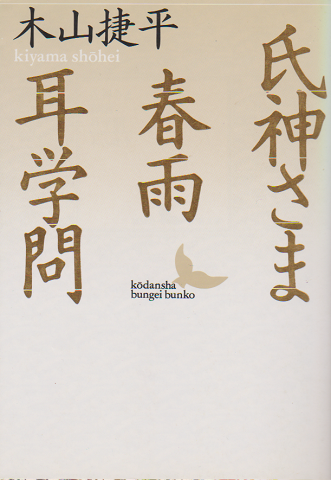 木山捷平
kiyama shōhei
氏神さま
春雨
耳学問
kōdansha
bungei bunko